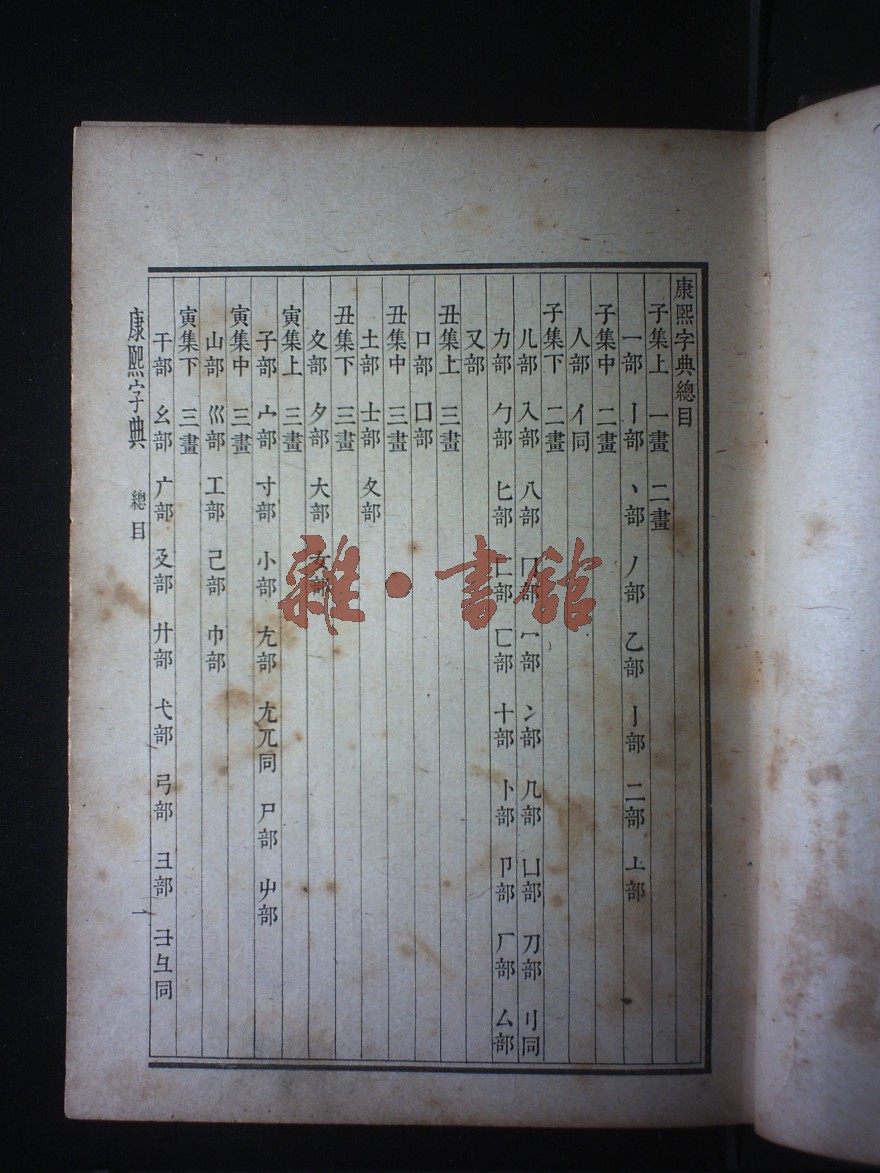 康熙字典總目
子集上 一畫 二畫
一部 丨部 丶部 丿部 乙部 亅部 二部 亠部
子集中 二畫
人部 亻同
子集下 二畫
儿部 入部 八部 冂部 冖部 冫部 几部 凵部 刀部 刂同
力部 勹部 匕部 匚部 匸部 十部 卜部 卩部 厂部 厶部
又部
丑集上 三畫
口部 囗部
丑集中 三畫
土部 士部 夂部
丑集下 三畫
夊部 夕部 大部 女部
寅集上 三畫
子部 宀部 寸部 小部 尢部 尣兀同 尸部 屮部
寅集中 三畫
山部 巛部 工部 己部 巾部
寅集下 三畫
干部 幺部 广部 廴部 廾部 弋部 弓部 彐部 彑同
康熙字典 總目 一
雜·書館